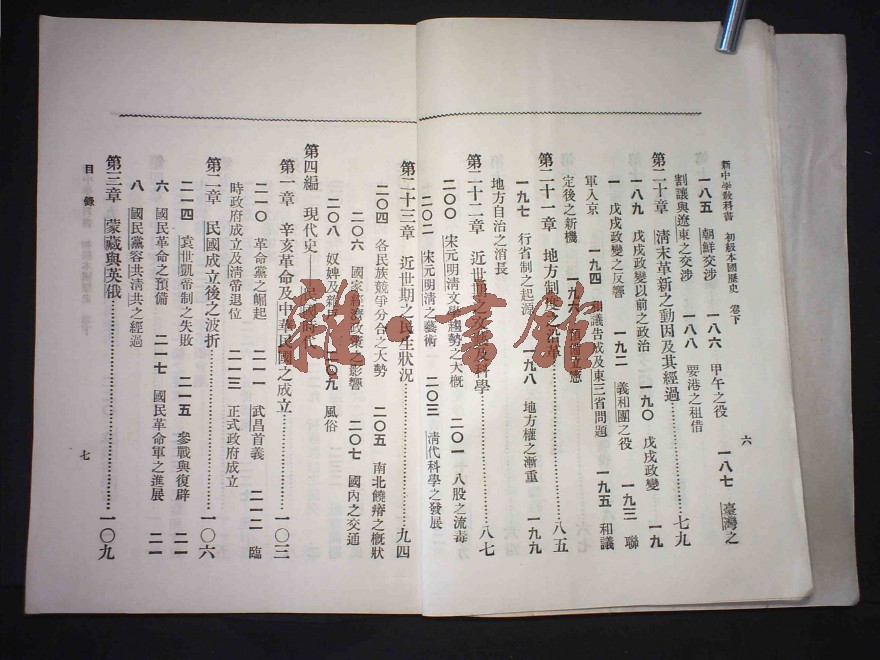 新中學教科書　初級本國歷史　卷下
六
一八五　朝鮮交涉　一八六　甲午之役　一八七　臺灣之
割讓與遼東之交涉　一八八　要港之租借
第二十章　淸末革新之動因及其經過……七九
一八九　戊戌政變以前之政治　一九〇　戊戌政變　一九
一　戊戌政變之反響　一九二　義和團之役　一九三　聯
軍入京　一九四　和議告成及東三省問題　一九五　和議
定後之新機　一九六　預備立憲
第二十一章　地方制度之沿革……八五
一九七　行省制之起源　一九八　地方權之漸重　一九九
地方自治之消長
第二十二章　近世期之文藝及科學……八七
二〇〇　宋元明淸文學趨勢之大槪　二〇一　八股之流毒
二〇二　宋元明淸之藝術　二〇三　淸代科學之發展
第二十三章　近世期之民生狀況……九四
二〇四　各民族競爭分合之大勢　二〇五　南北饒瘠之槪狀
二〇六　國家經濟政策之影響　二〇七　國內之交通
二〇八　奴婢及雜戶　二〇九　風俗
第四編　現代史——民國時代
第一章　辛亥革命及中華民國之成立……一〇三
二一〇　革命黨之崛起　二一一　武昌首義　二一二　臨
時政府成立及淸帝退位　二一三　正式政府成立
第二章　民國成立後之波折……一〇六
二一四　袁世凱帝制之失敗　二一五　參戰與復辟　二一
六　國民革命之預備　二一七　國民革命軍之進展　二一
八　國民黨容共淸共之經過
第三章　蒙藏與英俄……一〇九
目錄
七
雜書館